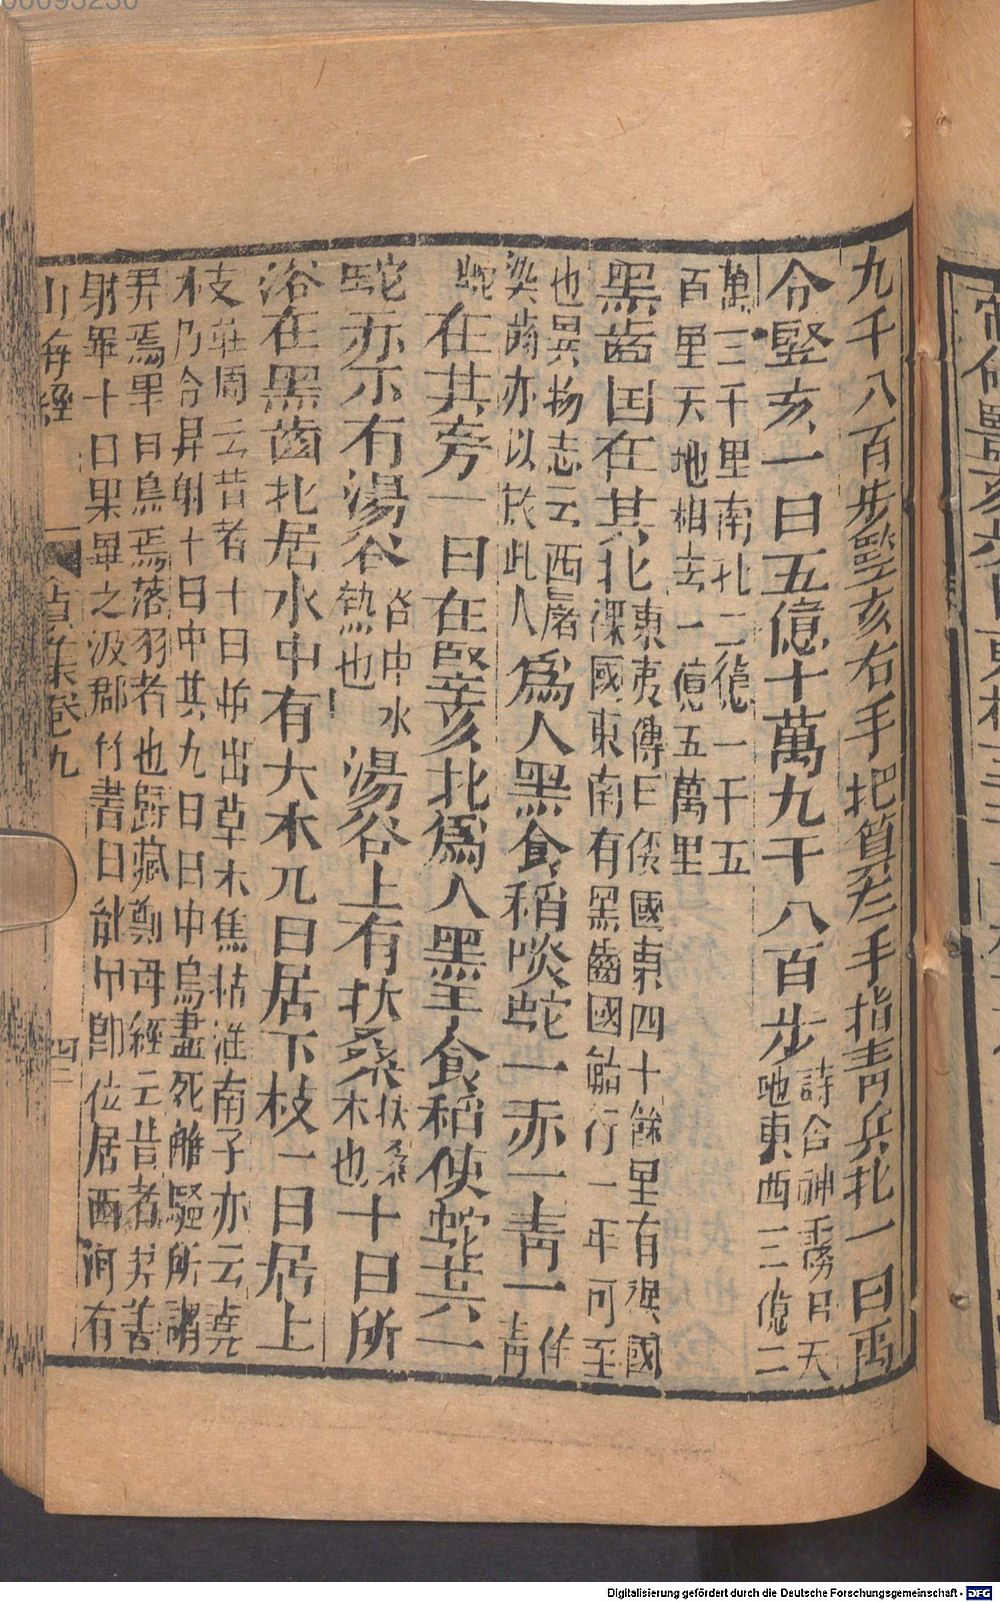 九千八百步豎亥右手把算左手指青丘北一曰禹
令豎亥一曰五億十萬九千八百步詩含神霧曰天地東西二億三
萬三千里南北二億一千五百里天地相去一億五萬里
黑齒国在其北東夷傳曰倭國東四十餘里有裸國裸國東南有黑齒國船行一年可至
也異物志云西屠染齒亦以放此人為人黑食稻啖蛇一赤一青一作青
蛇在其旁一曰在豎亥北為人黑手食稻使蛇其一
蛇赤下有湯谷谷中水熱也湯谷上有扶桑扶桑木也十日所
浴在黑齒北居水中有大木九日居下枝一日居上
枝莊周云昔者十日並出草木焦枯淮南子亦云堯
乃令羿射十日中其九日日中烏盡死離騷所謂
羿焉畢日烏焉落羽者也歸藏鄭母經云昔者羿善
射畢十日果畢之汲郡竹書曰胤甲即位居西河有
山海經 貞集卷九 四二
Digitalisierung gefördert durch die Deutsche Forschungsgemeinschaft - DFG